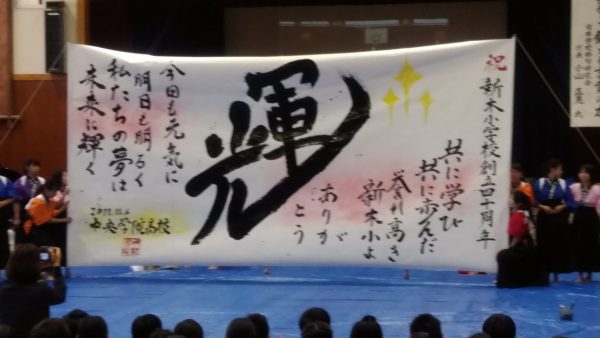 祝 新木小学校創立四十周年
共に学び
共に歩んだ
誉れ高き
新木小よ
ありが
とう
輝
今日も元気に
明日も明るく
私たちの夢は
未来に輝く
中央学院高校